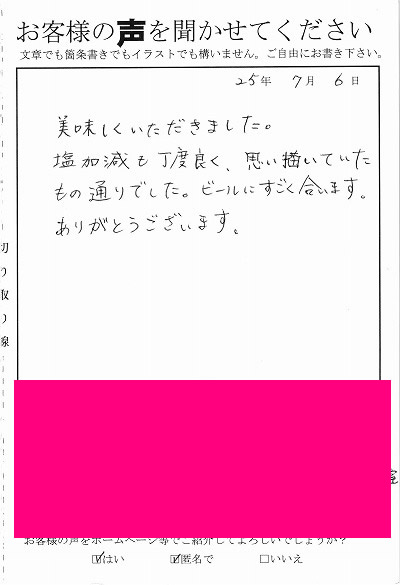 お客様の声を聞かせてください
文章でも箇条書きでもイラストでも構いません。ご自由にお書き下さい。
25年 7月 6日
美味しくいただきました。
塩加減も丁度良く、思い描いていた
もの通りでした。ビールにすごく合います。
ありがとうございます。
切り取り線
お客様の声をホームページ等でご紹介してよろしいでしょうか？
☑はい ☑匿名で □いいえ